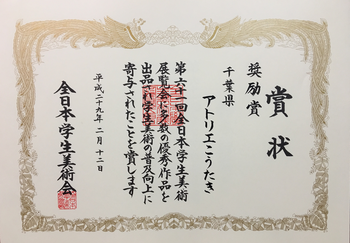 賞状
奨励賞
千葉県
アトリエこうたき
第六十一回全日本学生美術
展覧会に多数の優秀作品を
出品され学生美術の普及向上に
寄与されたことを賞します
平成二十九年二月十二日
全日本学生美術会